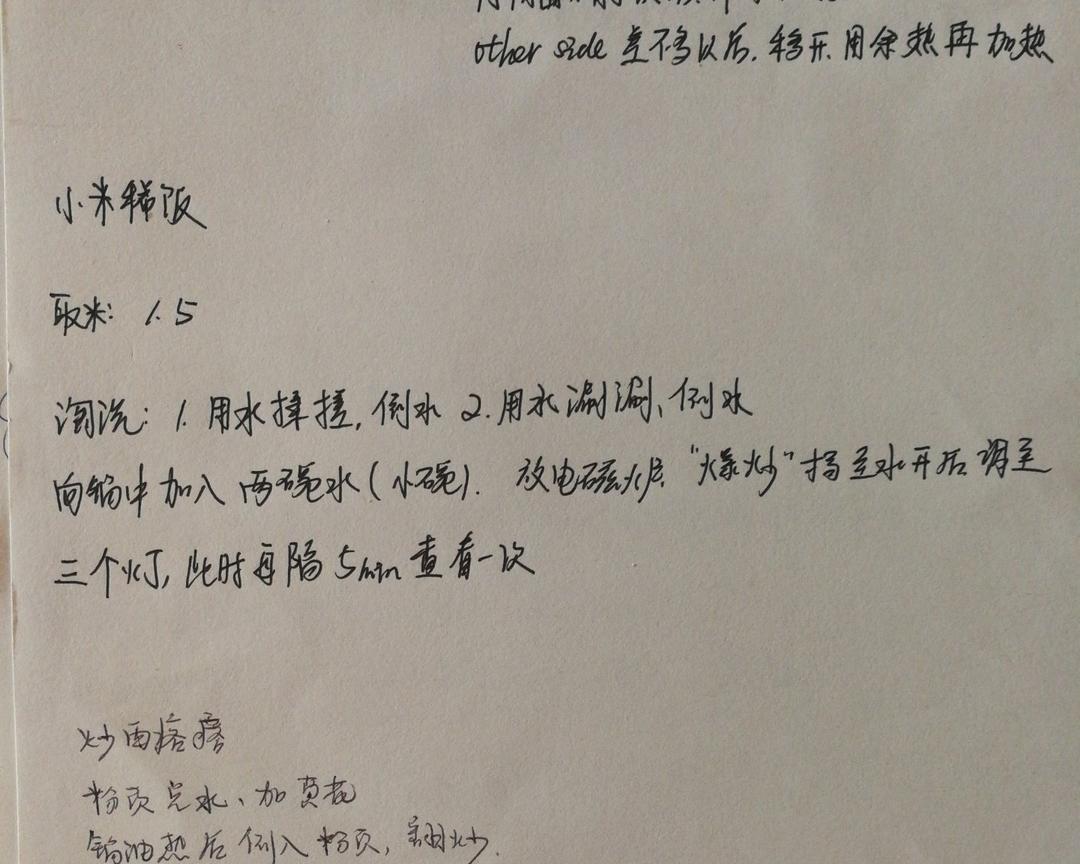 other side 差不多以后.移开.用余热再加热
小米稀饭
取米: 1.5
淘洗: 1. 用水揉搓,倒水 2.用水涮涮、倒水
向锅中加入两碗水(小碗). 放电磁炉. "爆炒"搞至水开后调至
三个灯, 此时每隔 5min 查看一次
炒面疙瘩
粉页完水、加黄花
锅油热后倒入粉页, 翻炒.